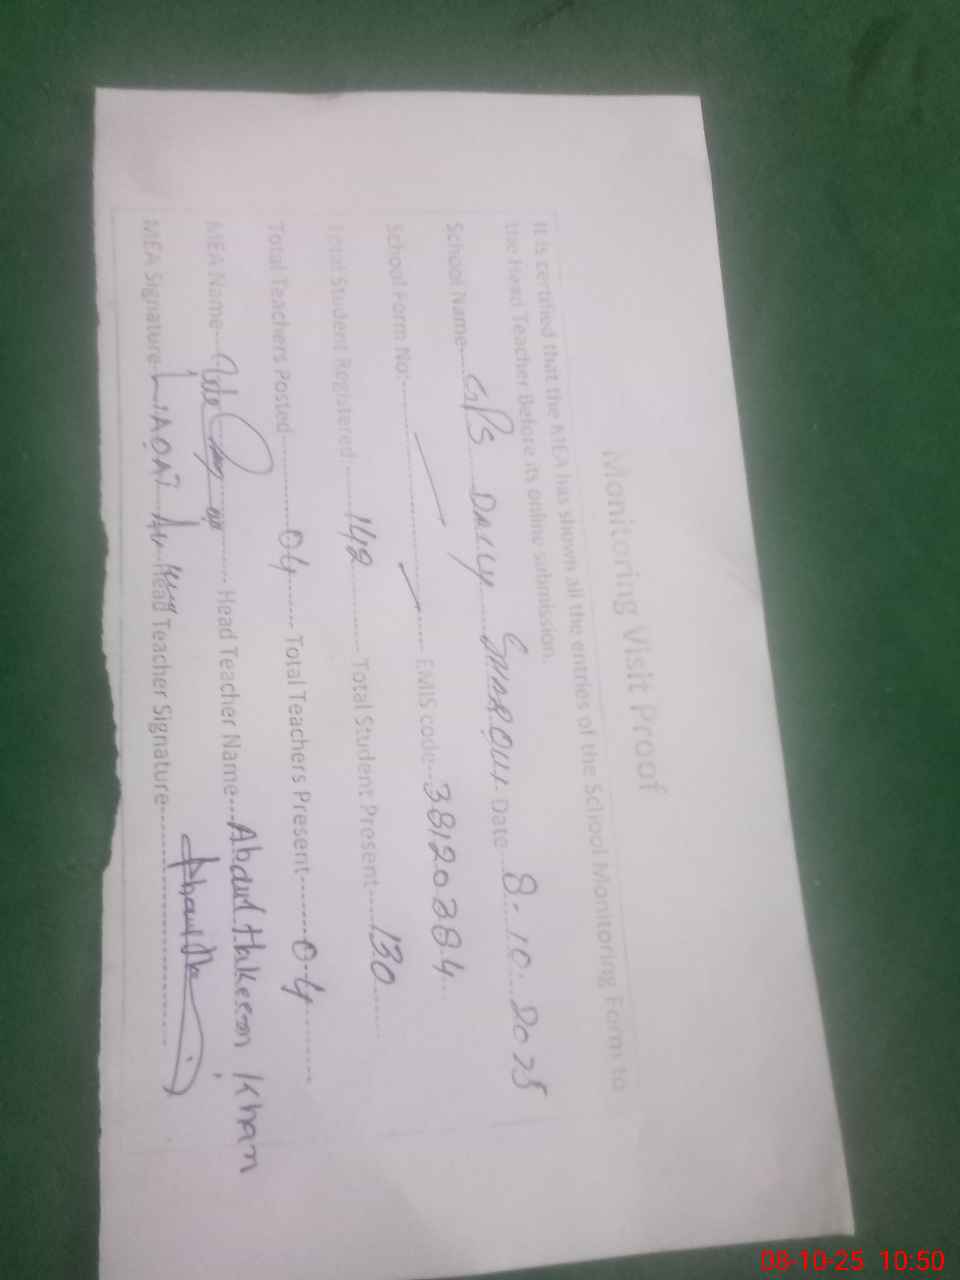 Monitoring Visit Proof
It is certified that the MEA has shown all the entries of the School Monitoring Form to
the Head Teacher Before its online submission.
School Name---GPS DALLY SHARQUI- Date---8-10-2025
School Form No:------------ EMIS code--38120384
Total Student Registered:------142------ Total Student Present----130
Total Teachers Posted----------04------ Total Teachers Present-------04---------
MEA Name--- Head Teacher Name---Abdul Hakeem Khan
MEA Signature-LIAQAT Head Teacher Signature----------------------
08-10-25 10:50